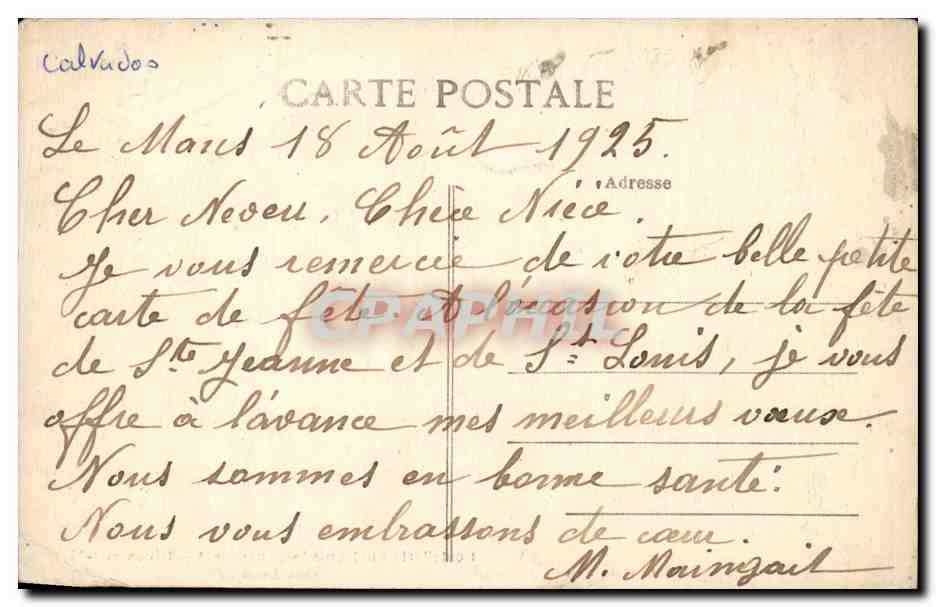 Calvados
CARTE POSTALE
Le Mans 18 Août 1925.
Adresse
Cher Neveu, Chère Nièce.
Je vous remercie de votre belle petite
carte de fête. A l'occasion de la fête
de Ste Jeanne et de St Louis, je vous
offre à l'avance mes meilleurs vœux.
Nous sommes en bonne santé.
Nous vous embrassons de cœur.
M.
CPAPHIL